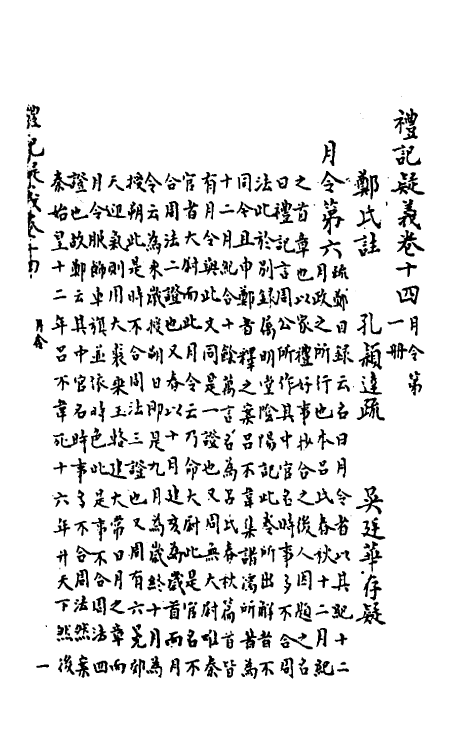 禮記疑義卷十四 月令第
一冊
鄭氏註 孔穎達疏 吳廷華存疑
月令第六 疏鄭目錄云名曰月令者以其紀十二
月政之所行也本呂氏春秋十二月紀
之首章也以家禮好事抄合之後人因題之名
曰禮記言周公所作其中官名時事多不合周
法此於別錄屬明堂陰陽記此卷所出解者不
同今且申鄭旨釋之案呂不韋集諸儒所著為
十二月紀合十餘萬言名為呂氏春秋篇首皆
有月令與此文同是一證也又周無大尉唯秦
官有大尉而此月令云乃命大尉此是官名不
合周法二證也又秦以十月建亥為歲首而月
令云為來歲授朔日即是九月為歲終十月為
授朔此是時不合周法三證也又周有六冕郊
天迎氣則用大裘乘玉輅建大常日月之章而
月令服飾車旗並依時色此是事不合周法四
證也故鄭云其中官名時事多不合周法然案
秦始皇十二年呂不韋死十六年并天下然後
禮記疑義卷十四 月令 一